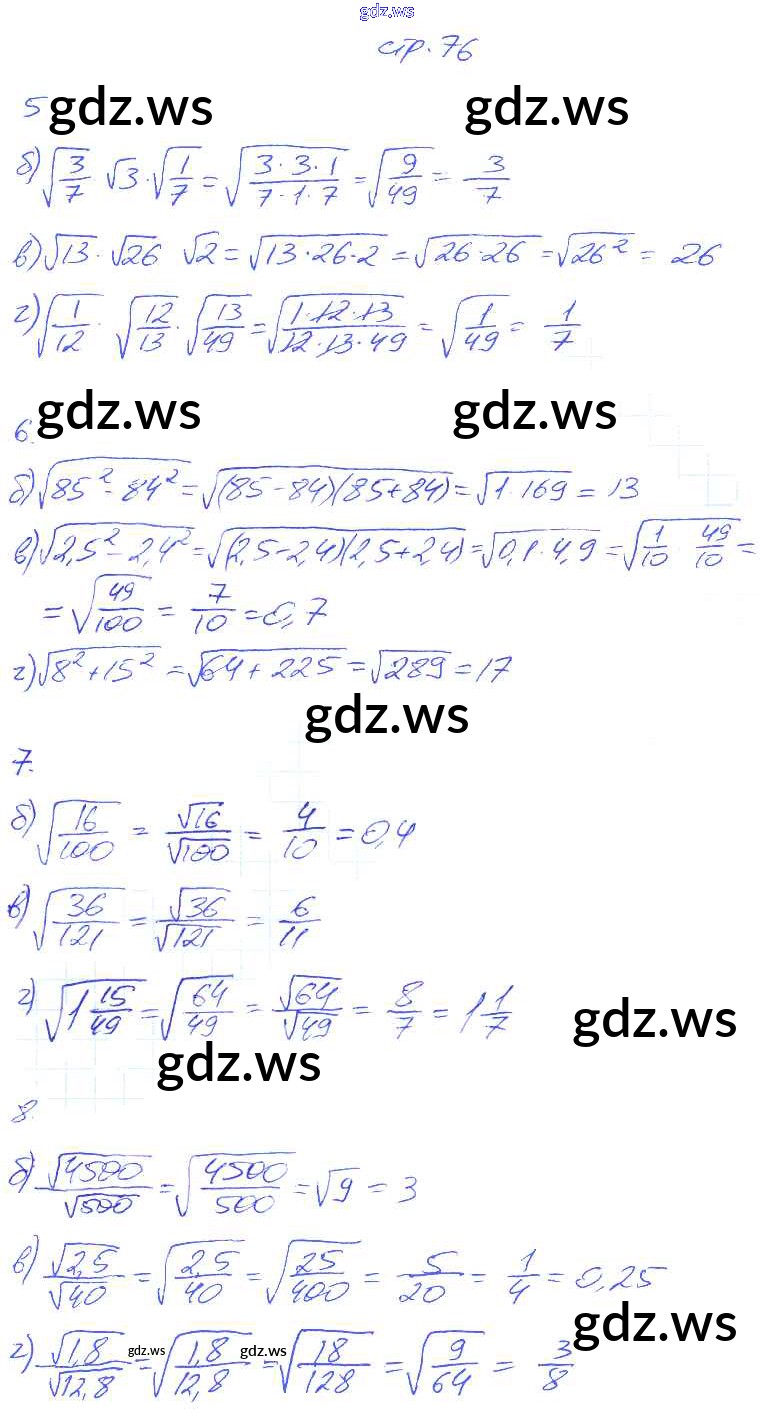 gdz.ws
стр. 76
5 gdz.ws gdz.ws
б) √(3/7) √3 · √(1/7) = √((3·3·1)/(7·1·7)) = √(9/49) = 3/7
в) √13 · √26 √2 = √(13·26·2) = √(26·26) = √(26²) = 26
г) √(1/12) · √(12/13) · √(13/49) = √((1·12·13)/(12·13·49)) = √(1/49) = 1/7
gdz.ws gdz.ws
6.
б) √(85² - 84²) = √((85-84)(85+84)) = √(1·169) = 13
в) √(2,5² - 2,4²) = √((2,5-2,4)(2,5+2,4)) = √(0,1·4,9) = √(1/10 · 49/10) =
= √(49/100) = 7/10 = 0,7
г) √(8² + 15²) = √(64 + 225) = √289 = 17
gdz.ws
7.
б) √(16/100) = √16/√100 = 4/10 = 0,4
в) √(36/121) = √36/√121 = 6/11
г) √(1 15/49) = √(64/49) = √64/√49 = 8/7 = 1 1/7
gdz.ws gdz.ws
8.
б) √4500/√500 = √(4500/500) = √9 = 3
в) √2,5/√40 = √(2,5/40) = √(25/400) = 5/20 = 1/4 = 0,25
gdz.ws
г) √1,8/√12,8 = √(1,8/12,8) = √(18/128) = √(9/64) = 3/8
gdz.ws gdz.ws